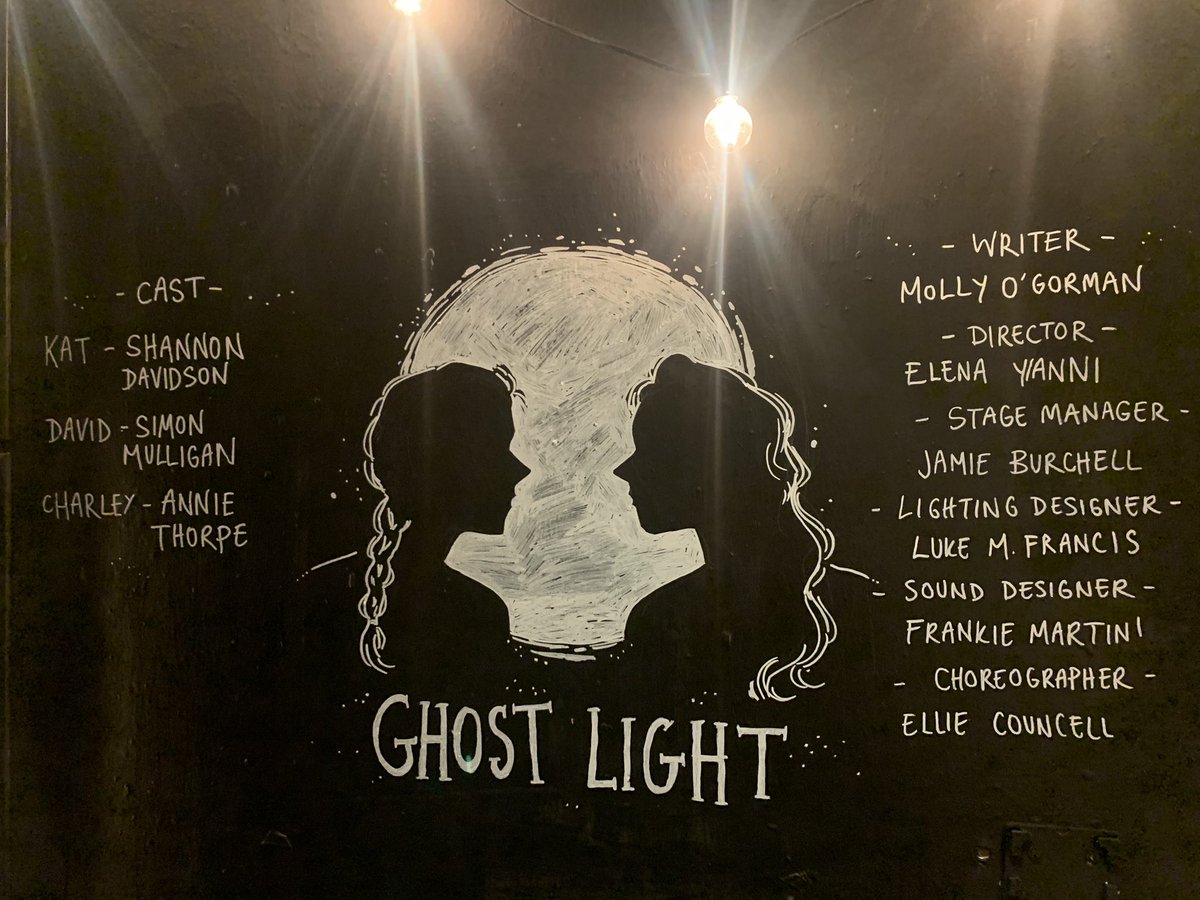 - CAST -
KAT - SHANNON
DAVIDSON
DAVID - SIMON
MULLIGAN
CHARLEY - ANNIE
THORPE
GHOST LIGHT
- WRITER -
MOLLY O'GORMAN
- DIRECTOR -
ELENA YIANNI
- STAGE MANAGER -
JAMIE BURCHELL
- LIGHTING DESIGNER -
LUKE M. FRANCIS
- SOUND DESIGNER -
FRANKIE MARTINI
- CHOREOGRAPHER -
ELLIE COUNCELL